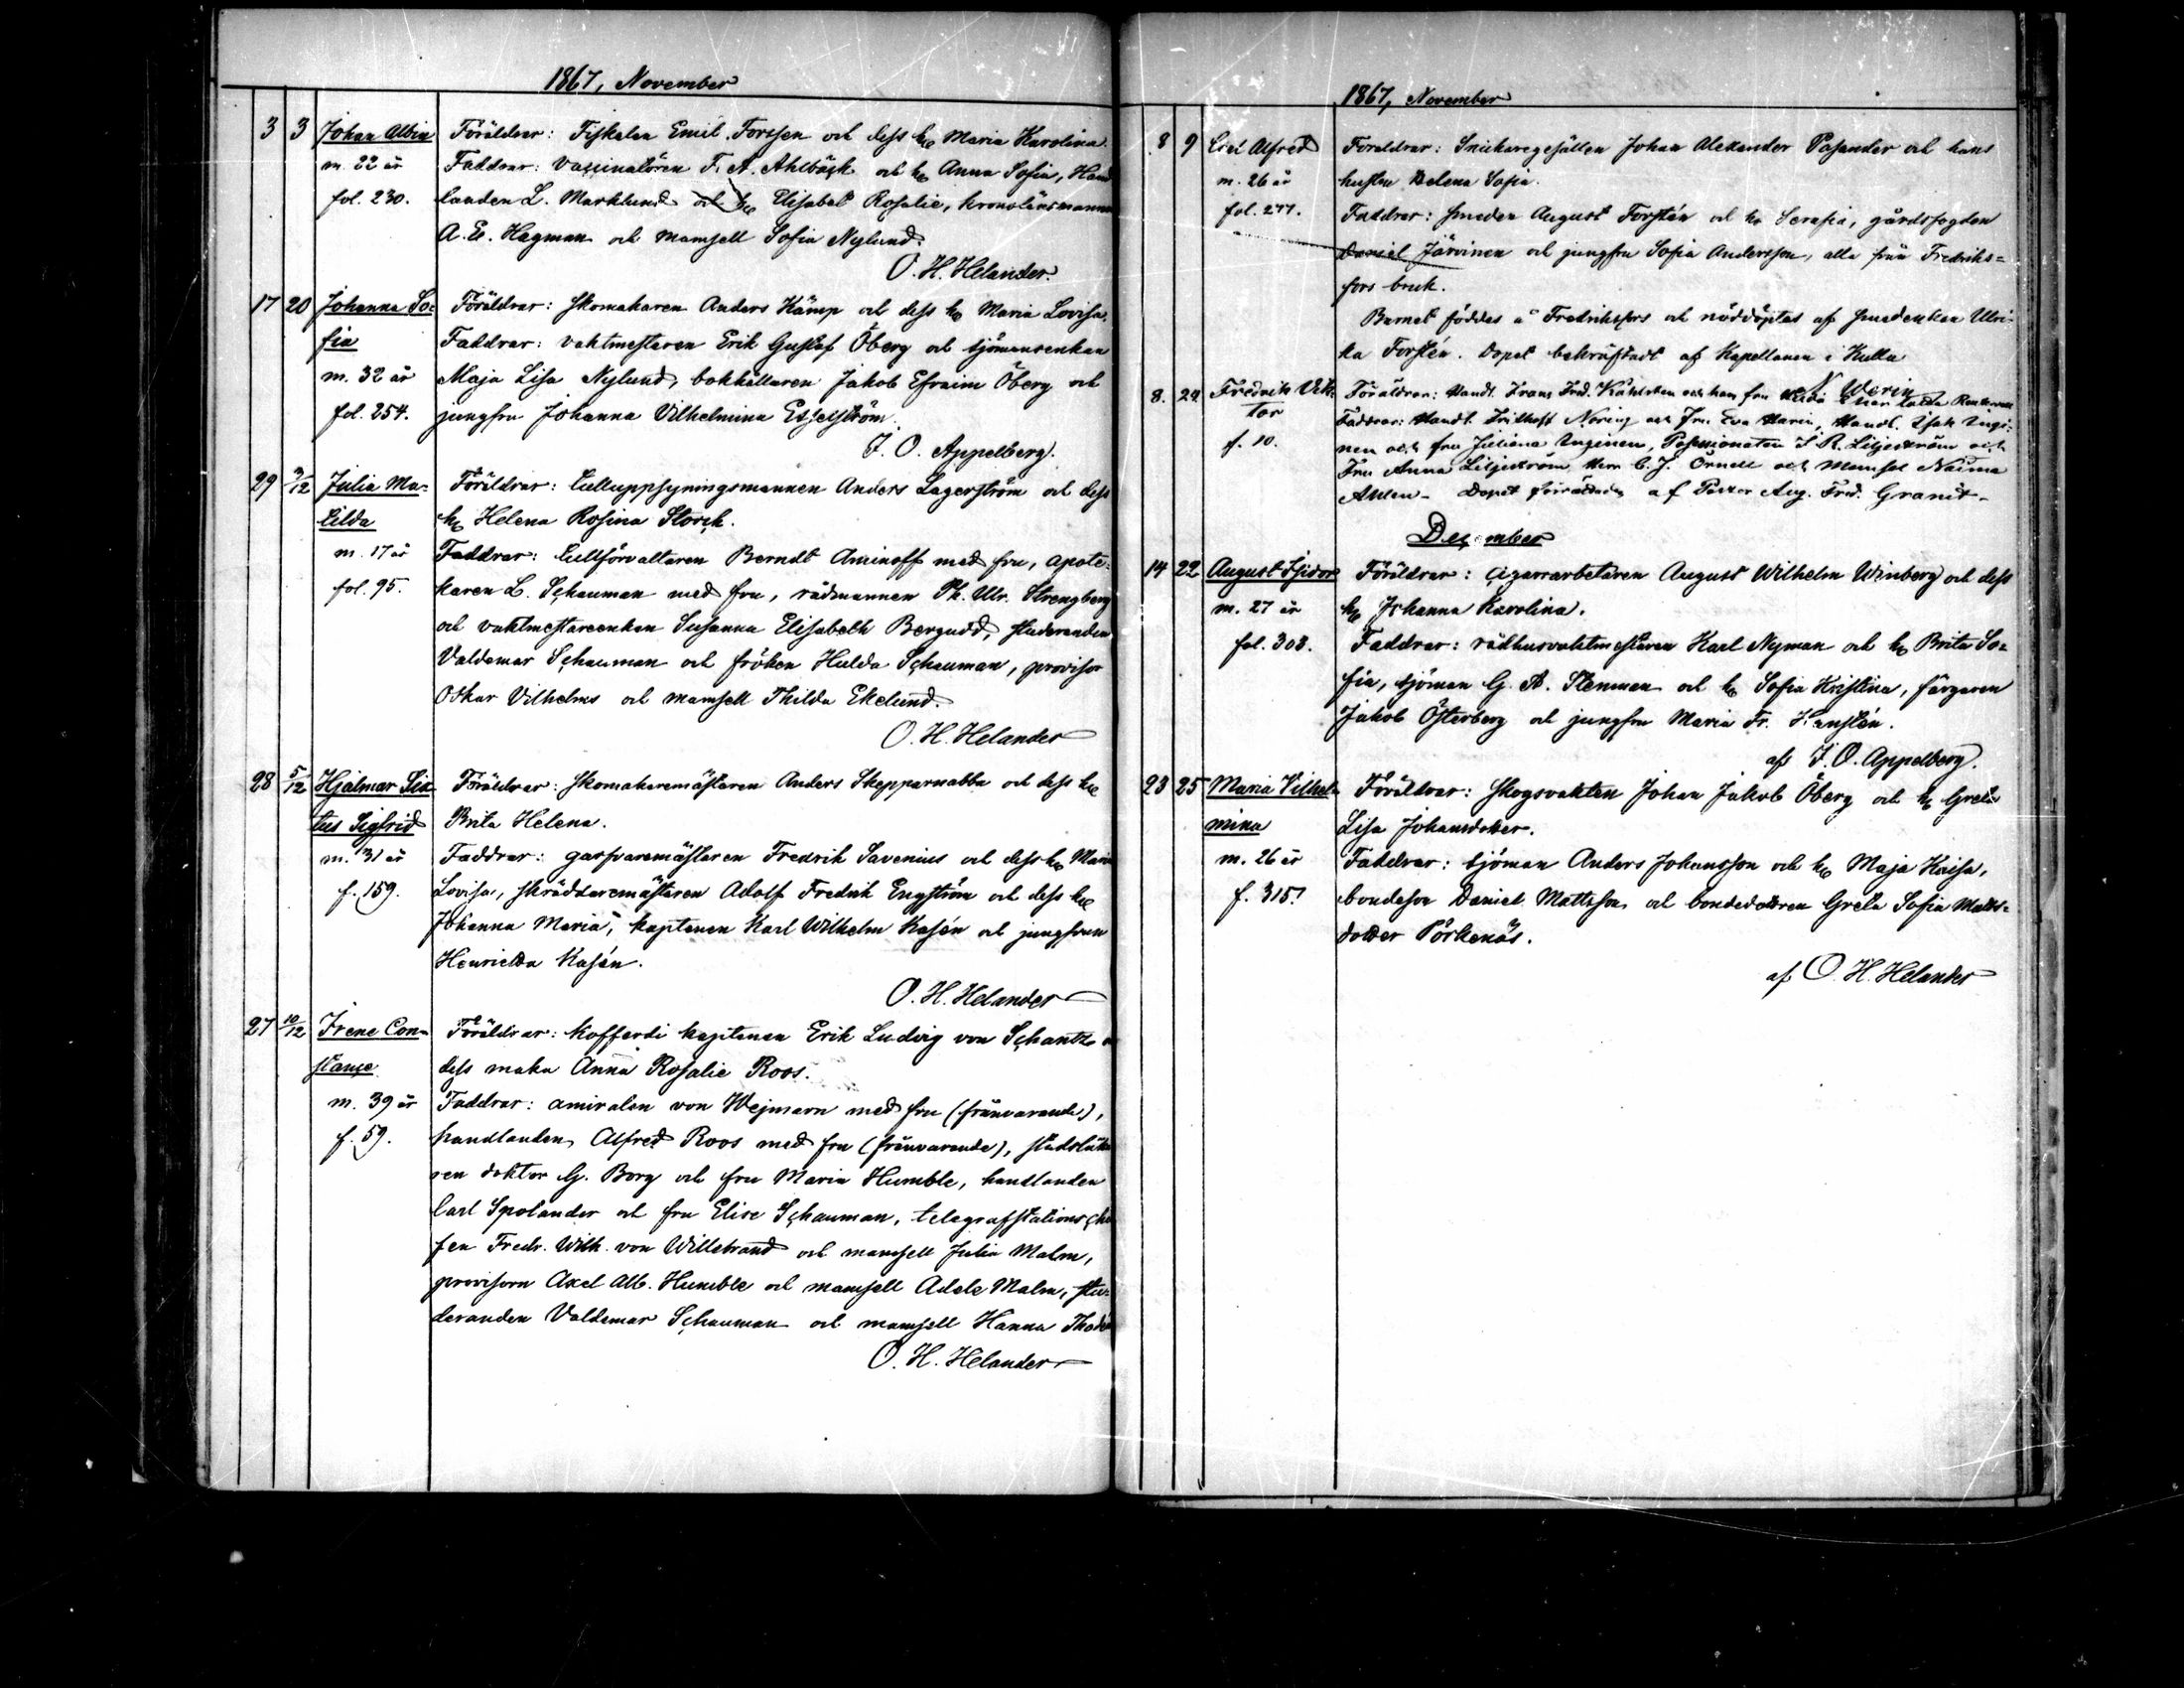 1867, November
3 3 Johan Albin Föräldrar: Fiskalen Emil Forssen och dess h. Maria Karolina.
m. 22 år Faddrar: vaccinatören F. A. Ahlbäck och h. Anna Sofia, Hand
fol. 230. landen L. Marklund och h. Elisabet Rosalie, kronolänsmannen
A. E. Hagman och mamsell Sofia Nylund.
O. H. Helander.
17 20 Johanna So- Föräldrar: skomakaren Anders Kämp och dess h. Maria Lovisa.
fia Faddrar: vaktmestaren Erik Gustaf Öberg och sjömansenkan
m. 32 år Maja Lisa Nylund, bokhållaren Jakob Efraim Öberg och
fol. 254. jungfru Johanna Vilhelmina
J. O. Appelberg.
29 3/12 Julia Ma- Föräldrar: tulluppsyningsmannen Anders Lagerström och dess
tilda h. Helena Rosina Storck.
m. 17 år Faddrar: tullförvaltaren Berndt Aminoff med fru, apote-
fol. 95. karen L. Schauman med fru, rådmannen Th. Ulr. Strengberg
och vaktmestareenkan Susanna Elisabeth Bergudd, studeranden
Valdemar Schauman och fröken Hulda Schauman, provisor
Oskar Vilhelms och mamsell Thilda Ekelund.
O. H. Helander
28 5/12 Hjalmar Six- Föräldrar: skomakaremästaren Anders Skepparnabba och dess h.
tus Sigfrid Brita Helena.
m. 31 år Faddrar: garfvaremästaren Fredrik Savenius och dess h. Maria
f. 159. Lovisa, skräddaremästaren Adolf Fredrik Engström och dess h.
Johanna Maria, kaptenen Karl Wilhelm Kasén och jungfrun
Henrietta Kasén.
O. H. Helander
27 10/12 Irene Con- Föräldrar: koffardi kaptenen Erik Ludvig von Schantz
stance dess maka Anna Rosalie Roos.
m. 39 år Faddrar: amiralen von Wejmarn med fru (frånvarande),
f. 59. handlanden Alfred Roos med fru (frånvarande), stadsläka
ren doktor G. Borg och fru Maria Humble, handlanden
Carl Spolander och fru Elise Schauman, telegrafstationsche
fen Fredr. Wilh. von Willebrand och mamsell Julia Malm,
provisorn Axel Alb. Humble och mamsell Adele Malm, stu-
deranden Valdemar Schauman och mamsell Hanna Thodén
O. H. Helander
1867, November
8 9 Alfred Föraldrar: Snickaregesällen Johan Alexander Pasander och hans
m. 26 år hustru Helena Sofia.
fol. 277. Faddrar: smeden August Forstén och h. Serafia, gårdsfogden
Daniel Järvinen och jungfru Sofia Andersson, alla från Fredriks-
fors bruk.
Barnet föddes å Fredriksfors och nöddöptes af smedenkan Ulri-
ka Forstén. Dopet bekräftadt af Kapellanen i Kulla
N Werin
8. 24. Fredrik Vik- Föräldrar: Handl. Frans Fred. och hans fru
tor Faddrar: Handl. Fridthoft Nering och Fru Eva Maria, Handl. Isak Ingi-
f. 10. nen och fru Juliana Inginen, Possessionaten J. R. Liljeström och
Fru Anna Liljeström, Herr C. J. Örnell och Mamsel Naima
Ahlen. Dopet förrättades af Pastor Aug. Fred. Granit.
December
14 22 August Isidor Föräldrar: cigarrarbetaren August Wilhelm Winberg och dess
m. 27 år h. Johanna Karolina.
fol. 303. Faddrar: rådhusvaktmestaren Karl Nyman och h. Brita So-
fia, sjöman G. A. Stenman och h. Sofia Kristina, färgaren
Jakob Österberg och jungfru Maria Fr.
af J. O. Appelberg.
23 25 Maria Vilhel- Föräldrar: skogsvakten Johan Jakob Öberg och h. Greta
mina Lisa Johansdotter.
m. 26 år Faddrar: sjöman Anders Johansson och h. Maja Kaisa,
f. 315. bondeson Daniel Mattsson och bondedottren Greta Sofia Matts-
dotter Pörkenäs.
af O. H. Helander